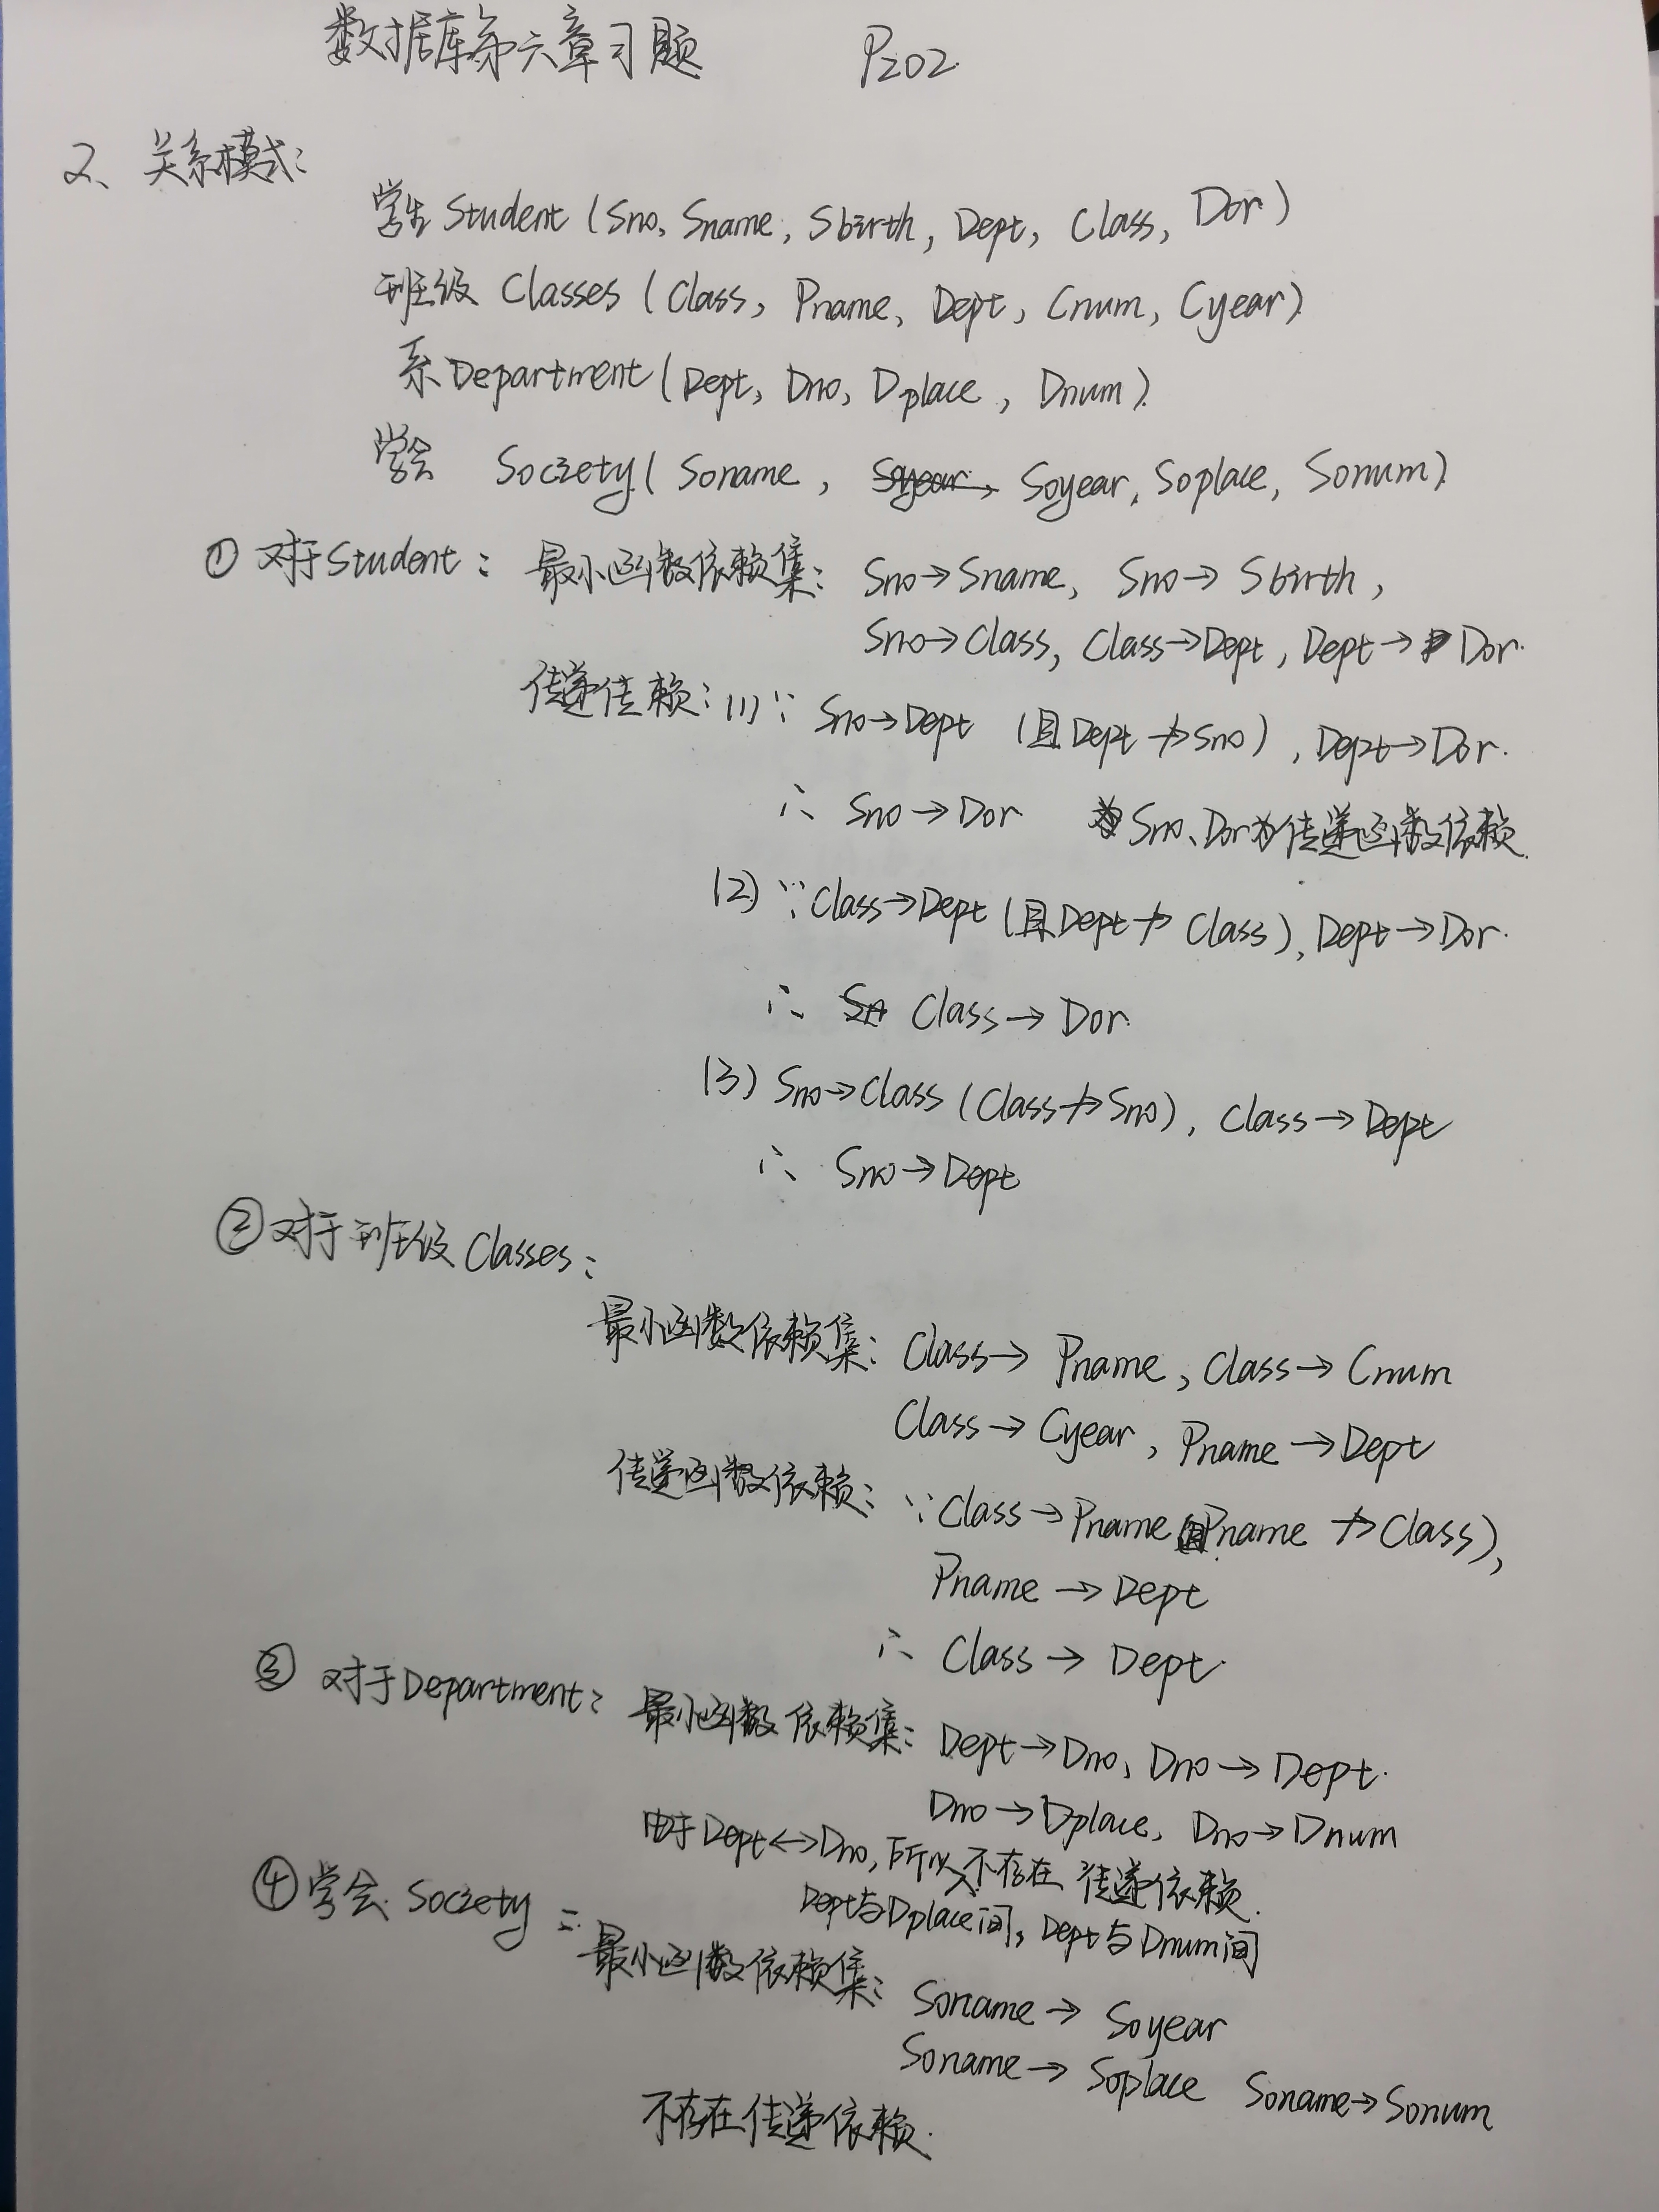 数据库第六章习题 P202
2、关系模式:
学生 Student (Sno, Sname, Sbirth, Dept, Class, Dor)
班级 Classes (Class, Pname, Dept, Cnum, Cyear)
系 Department (Dept, Dno, Dplace, Dnum)
学会 Society (Soname, Soyear, Soplace, Sonum)
① 对于Student: 最小函数依赖集: Sno→Sname, Sno→Sbirth,
Sno→Class, Class→Dept, Dept→Dor.
传递依赖: (1) ∵ Sno→Dept (且Dept↛Sno), Dept→Dor.
∴ Sno→Dor Sno、Dor为传递函数依赖.
(2) ∵Class→Dept (且Dept↛Class), Dept→Dor.
∴ Class→Dor.
(3) Sno→Class (Class↛Sno), Class→Dept
∴ Sno→Dept
② 对于班级 Classes:
最小函数依赖集: Class→Pname, Class→Cnum
Class→Cyear, Pname→Dept
传递函数依赖: ∵Class→Pname (且Pname↛Class),
Pname→Dept
∴ Class→Dept.
③ 对于Department: 最小函数依赖集: Dept→Dno, Dno→Dept.
Dno→Dplace, Dno→Dnum
由于Dept↔Dno, 所以不存在传递依赖.
Dept与Dplace间, Dept与Dnum间
④ 学会 Society:
最小函数依赖集: Soname→Soyear
Soname→Soplace Soname→Sonum
不存在传递依赖.